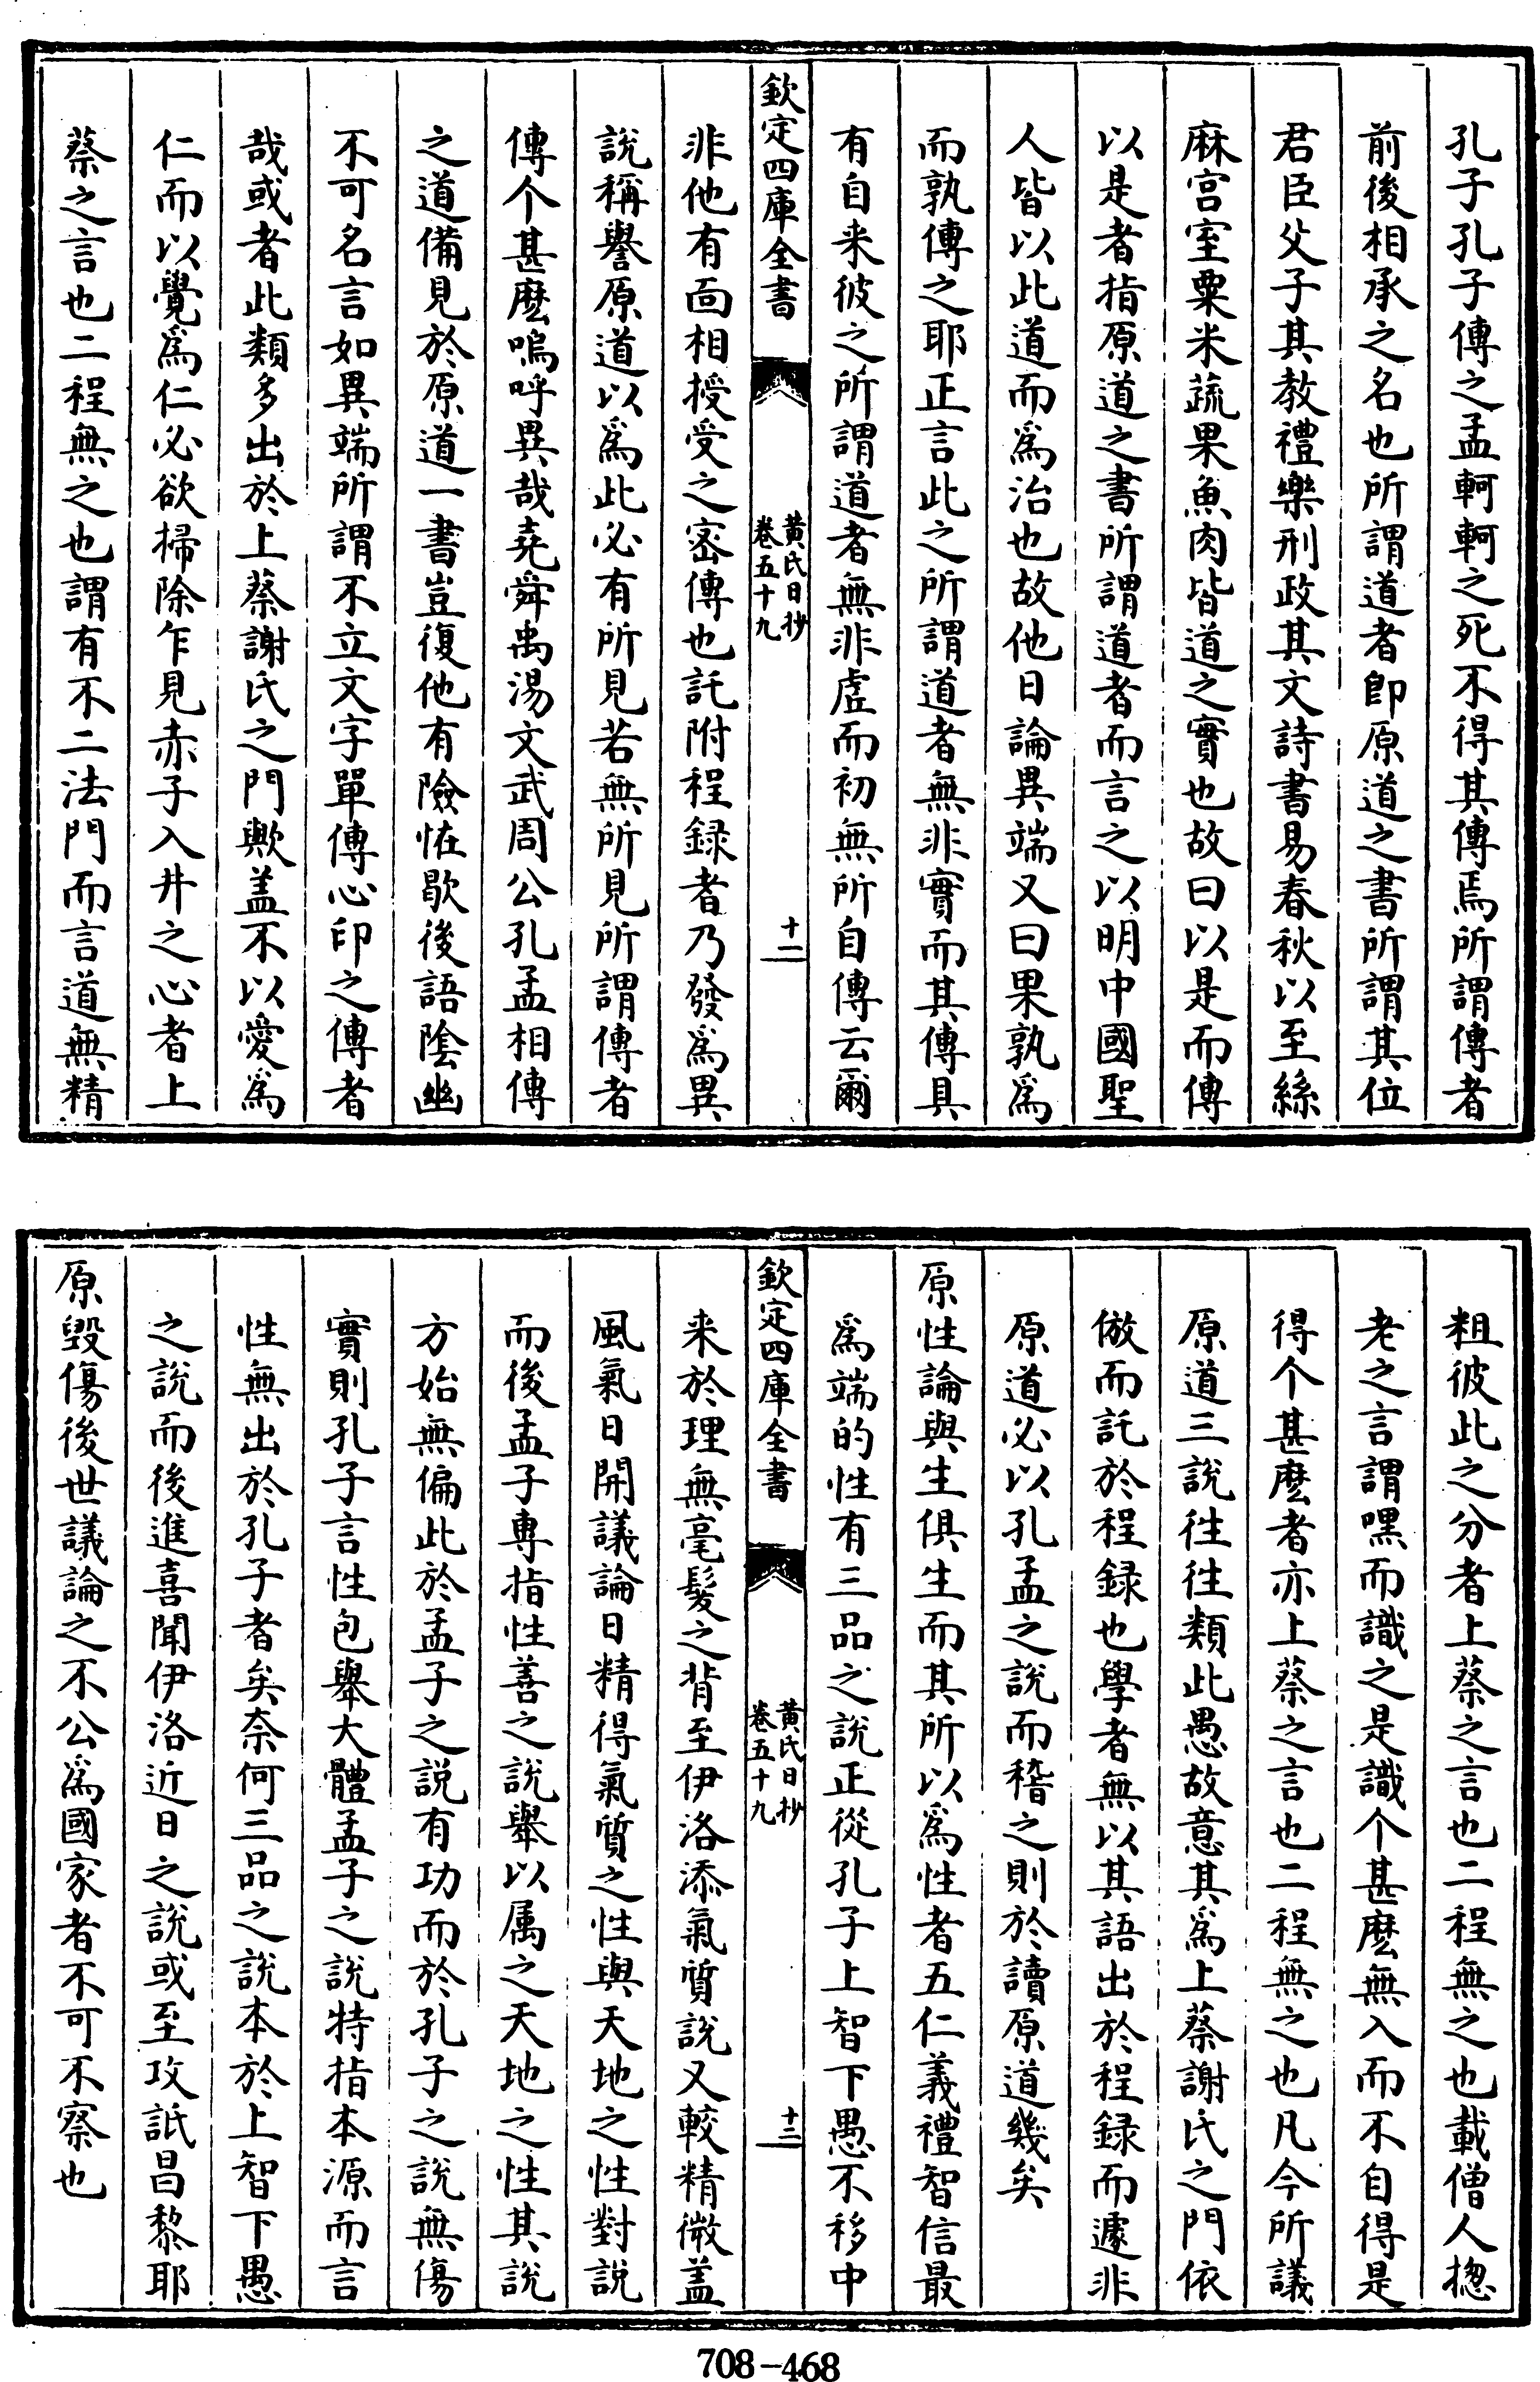 孔子孔子傳之孟軻軻之死不得其傳焉所謂傳者
前後相承之名也所謂道者即原道之書所謂其位
君臣父子其教禮樂刑政其文詩書易春秋以至絲
麻宫室粟米蔬果魚肉皆道之實也故曰以是而傳
以是者指原道之書所謂道者而言之以明中國聖
人皆以此道而為治也故他日論異端又曰果孰為
而孰傳之耶正言此之所謂道者無非實而其傳具
有自来彼之所謂道者無非虛而初無所自傳云爾
欽定四庫全書
黄氏日抄
卷五十九
十二
非他有面相授受之密傳也託附程録者乃發為異
說稱譽原道以為此必有所見若無所見所謂傳者
傳个甚麽嗚呼異哉堯舜禹湯文武周公孔孟相傳
之道備見於原道一書豈復他有險恠歇後語隂幽
不可名言如異端所謂不立文字單傳心印之傳者
哉或者此類多出於上蔡謝氏之門歟盖不以愛為
仁而以覺為仁必欲掃除乍見赤子入井之心者上
蔡之言也二程無之也謂有不二法門而言道無精
粗彼此之分者上蔡之言也二程無之也載僧人揔
老之言謂嘿而識之是識个甚麽無入而不自得是
得个甚麽者亦上蔡之言也二程無之也凡今所議
原道三說徃徃類此愚故意其為上蔡謝氏之門依
倣而託於程録也學者無以其語出於程録而遽非
原道必以孔孟之說而稽之則於讀原道幾矣
原性論與生俱生而其所以為性者五仁義禮智信最
為端的性有三品之說正從孔子上智下愚不移中
欽定四庫全書
黄氏日抄
卷五十九
十三
来於理無毫髮之背至伊洛添氣質說又較精微盖
風氣日開議論日精得氣質之性與天地之性對說
而後孟子専指性善之說舉以属之天地之性其說
方始無偏此於孟子之説有功而於孔子之說無傷
實則孔子言性包舉大體孟子之說特指本源而言
性無出於孔子者矣奈何三品之說本於上智下愚
之說而後進喜聞伊洛近日之說或至攻詆昌黎耶
原毀傷後世議論之不公為國家者不可不察也
708-468